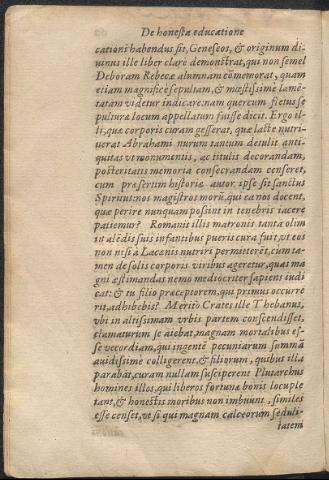 De honesta educatione
cationi habendus sit, Geneseos, & originum di-
uinus ille liber clare demonstrat, qui non semel
Deboram Rebecæ alumnam cōmemorat, quam
etiam magnifice sepultam, & mœstissime lamē-
tatam videtur indicare: nam quercum fletus se
pulturæ locum appellatum fuisse dicit. Ergo il-
li, quæ corporis curam gesserat, quæ lacte nutri-
uerat Abrahami nurum tantum detulit anti-
quitas vt monumentis, ac titulis decorandam,
posteritatis memoria consecrandam censeret,
cum præsertim historiæ autor ipse sit sanctus
Spiritus: nos magistros morū, qui ea nos docent,
quæ perire nunquam possint in tenebris iacere
patiemur? Romanis illis matronis tanta olim
in alēdis suis infantibus pueris cura fuit, vt eos
non nisi à Lacænis nutriri permitterēt, cum ta-
men de solis corporis viribus ageretur, quas ma
gni æstimandas nemo mediocriter sapiens iudi
cat: & tu filio præceptorem, qui primus occurre
rit, adhibebis? Meritò Crates ille Thebanus,
vbi in altissimam vrbis partem conscendisset,
clamaturum se aiebat, magnam mortalibus es-
se vecordiam, qui ingentē pecuniarum summā
auidissime colligerent, & filiorum, quibus illa
parabāt, curam nullam susciperent Plutarchus
homines illos, qui liberos fortunæ bonis locuple
tant, & honestis moribus non imbuunt, similes
esse censet, vt si qui magnam calceorum seduli-
tatem